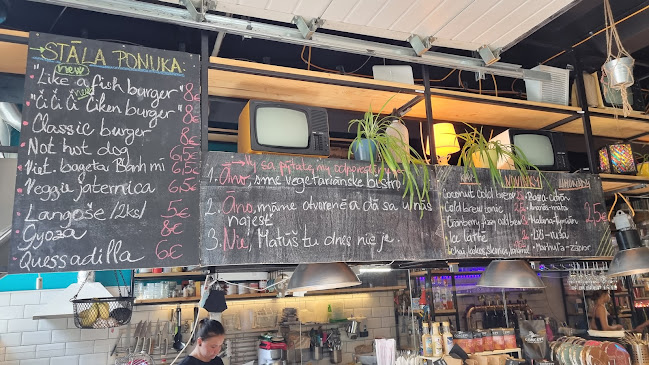 STÁLA PONUKA
new
"Like a fish burger" 8€
new
"Čiči čiken burger" 8€
Classic burger 8€
Not hot dog 6,5€
Viet. bageta Bánh mì 6,5€
Veggie jaternica 6,5€
Langoše /2ks/ 5€
Gyoza 8€
Quessadilla 6€
Vy sa pýtate, my odpovedáme
1. Áno, sme vegetariánske bistro
2. Áno, máme otvorené a dá sa u nás najesť
3. Nie, Matúš tu dnes nie je.
Coconut cold brew
Cold brew tonic
Ice latté
LIMONÁDY
2,5€